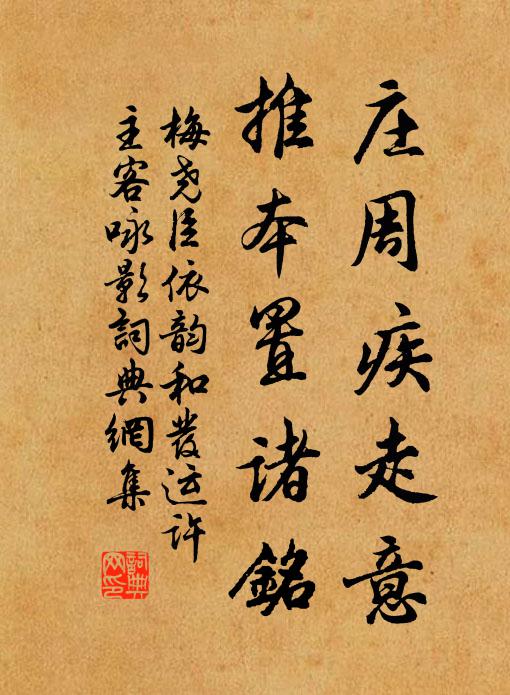 庄周疾走意
推本置诸銘
梅尧臣依韵和發运许
主客咏影詞典網集
詞典網印